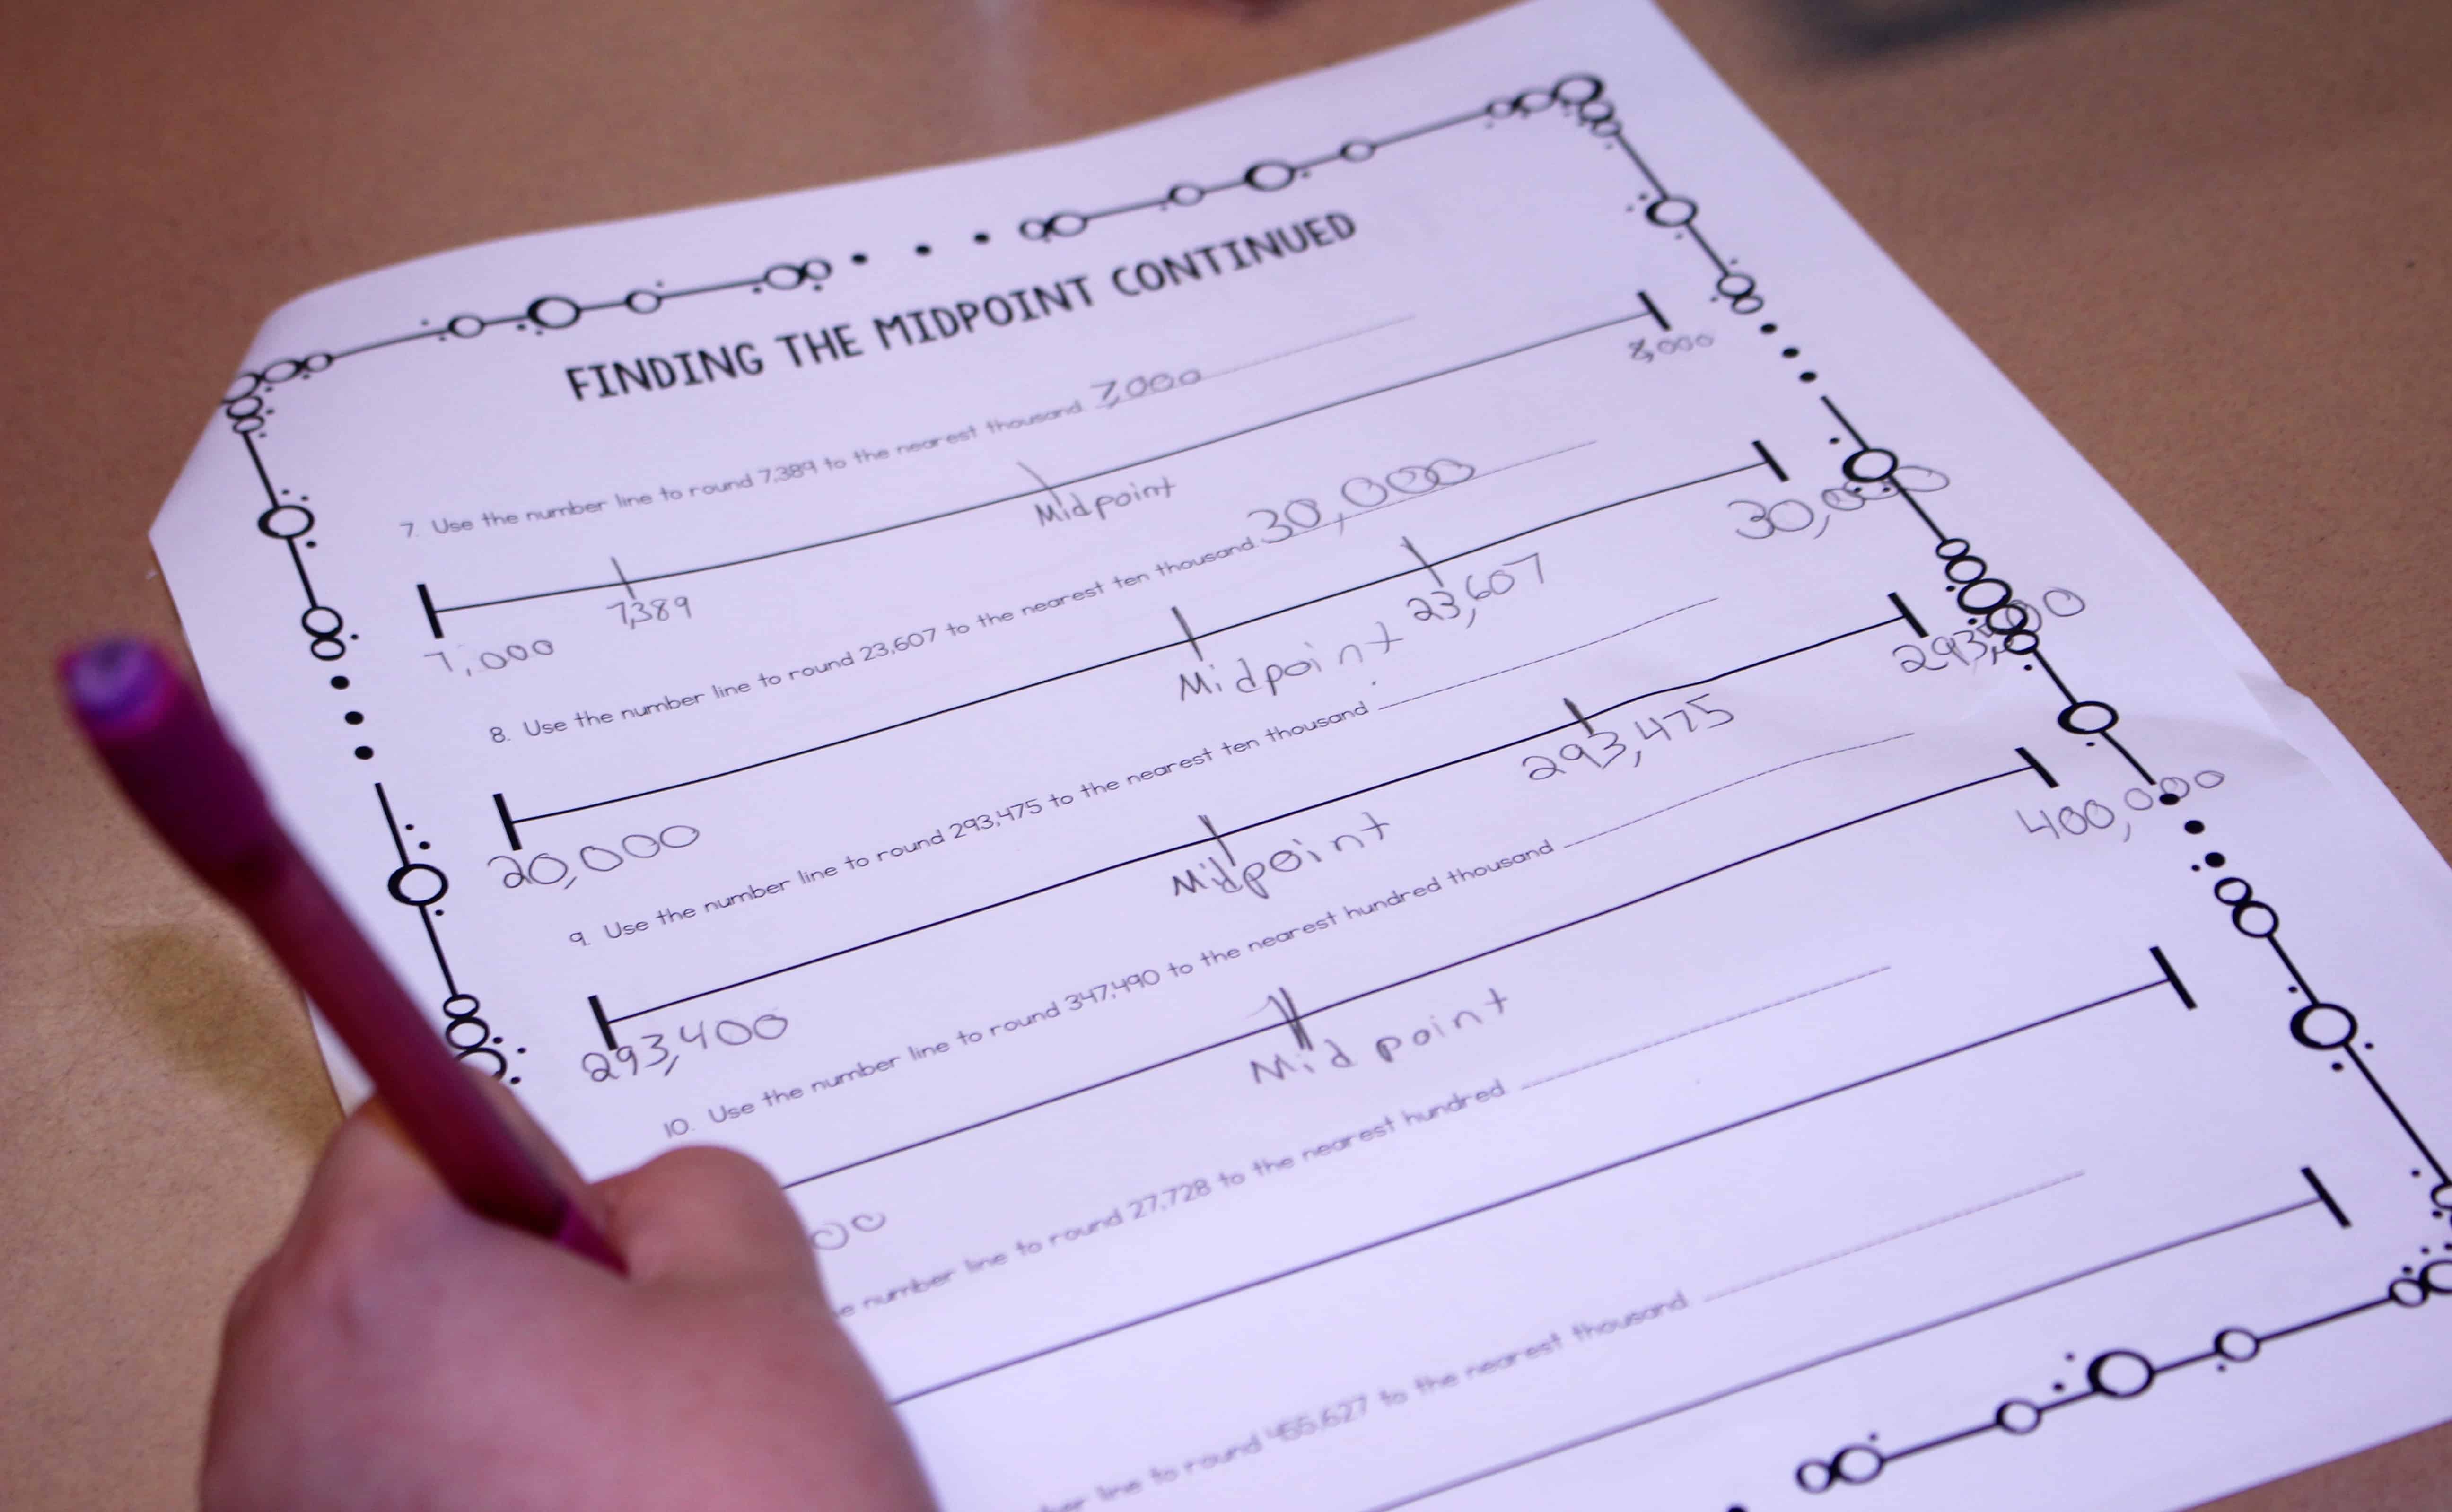 FINDING THE MIDPOINT CONTINUED
7. Use the number line to round 7,389 to the nearest thousand 7,000
8,000
Midpoint
7,389
7,000
8. Use the number line to round 23,607 to the nearest ten thousand 30,000
30,000
23,607
Midpoint
20,000
9. Use the number line to round 293,475 to the nearest ten thousand
293,500
293,475
Midpoint
293,400
10. Use the number line to round 347,490 to the nearest hundred thousand
400,000
Midpoint
00
number line to round 27,728 to the nearest hundred
line to round 455,627 to the nearest thousand